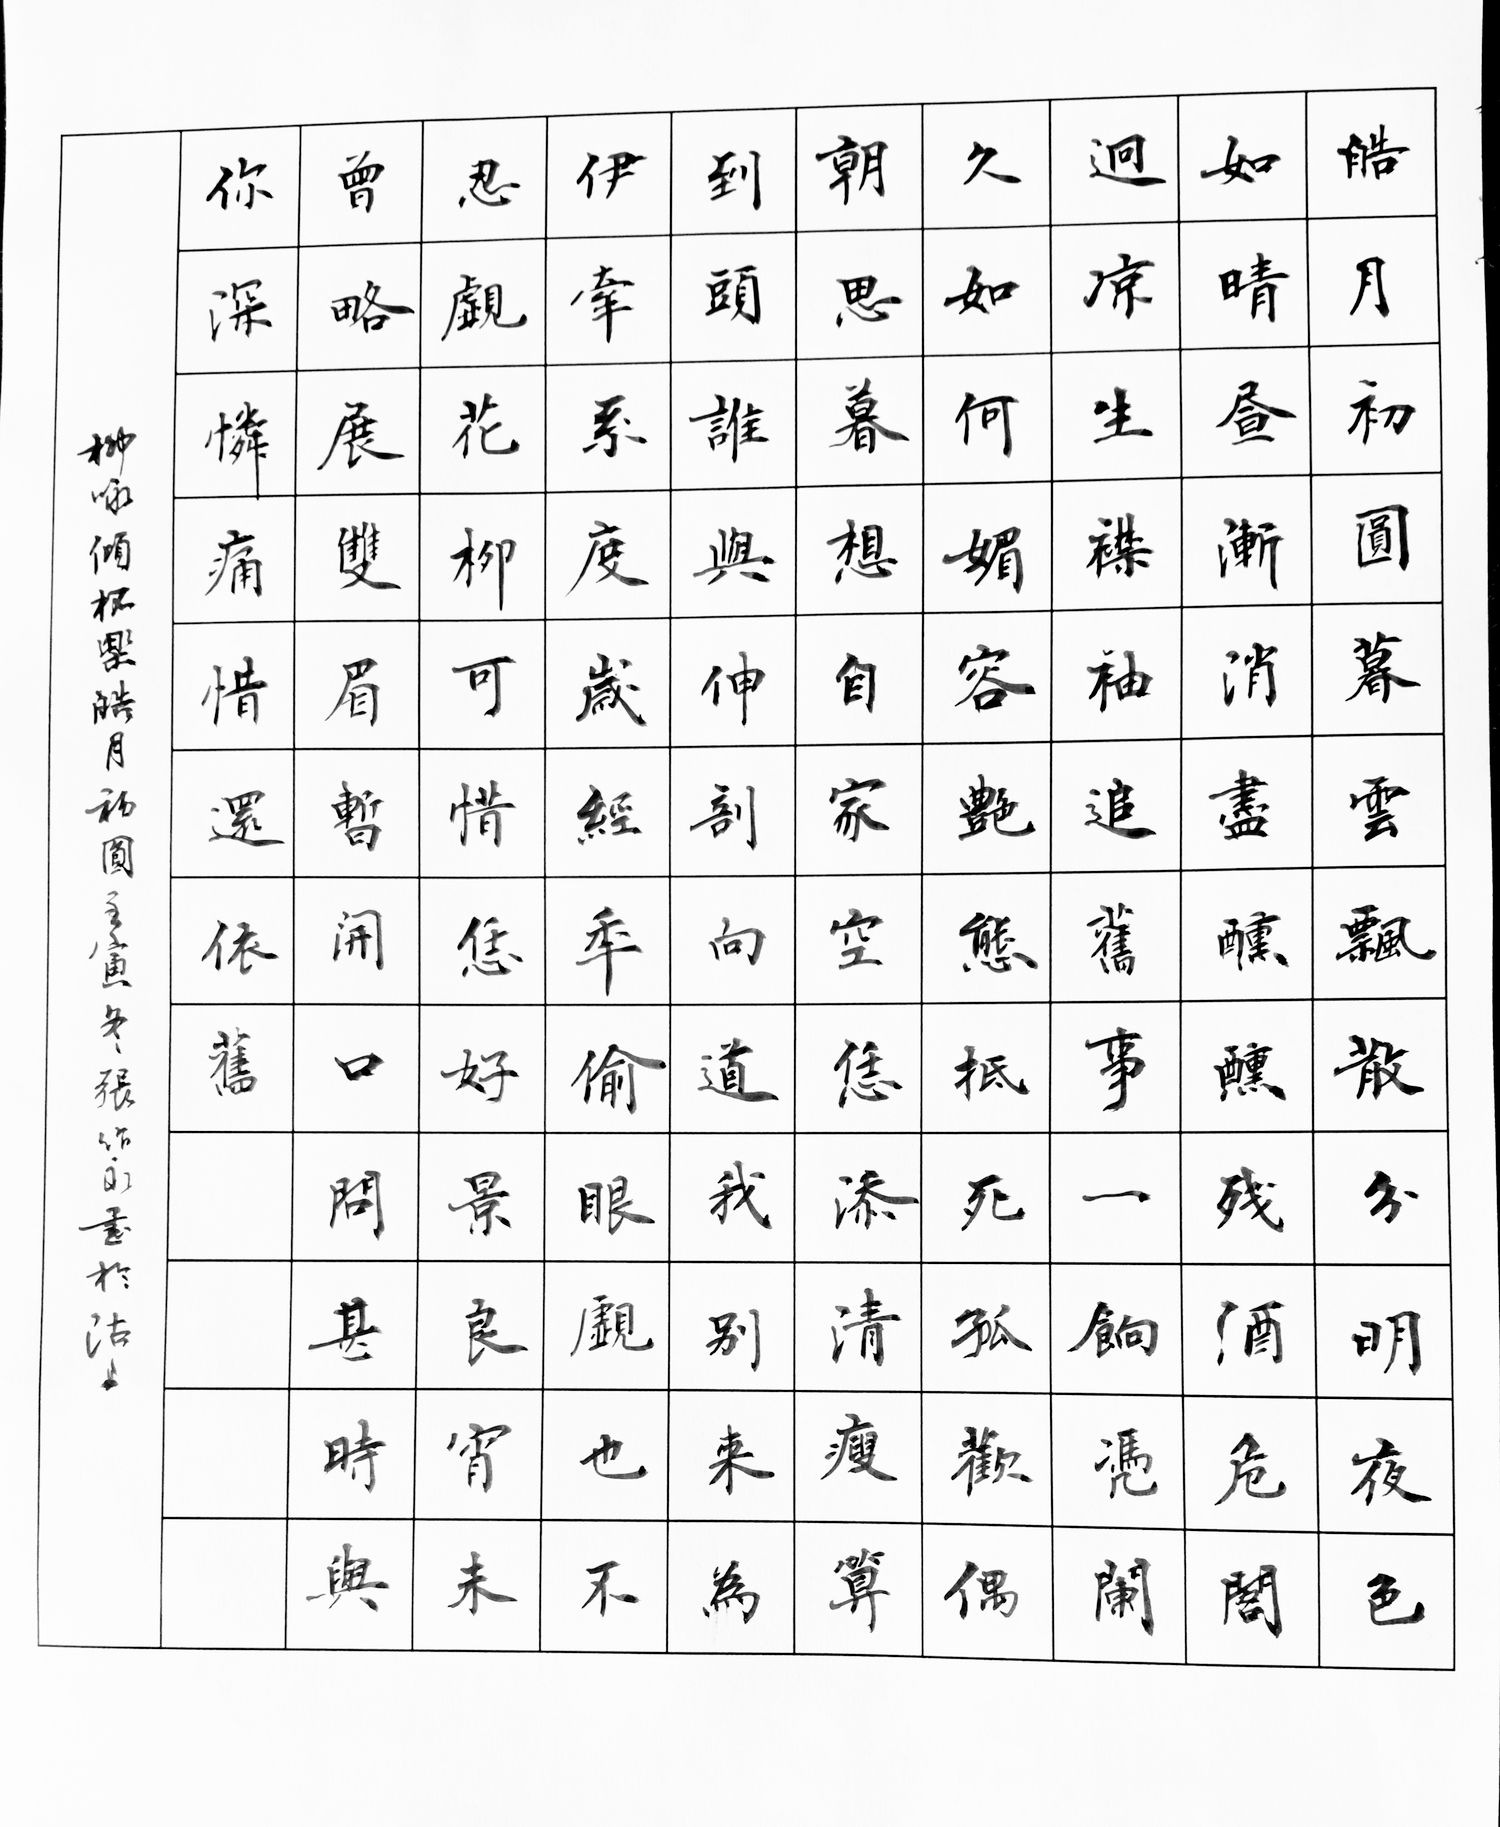 皓月初圓暮雲飄散分明夜色
如晴晝漸消盡醺醺残酒危閣
迥凉生襟袖追舊事一餉憑闌
久如何媚容艷態抵死孤歡偶
朝思暮想自家空恁添清瘦算
到頭誰與伸剖向道我别来為
伊牽系度歲經年偷眼覷也不
忍覷花柳可惜恁好景良宵未
曾略展雙眉暫開口問甚時與
你深憐痛惜還依舊
柳咏傾杯樂皓月初圓壬寅冬張作永書於沽上